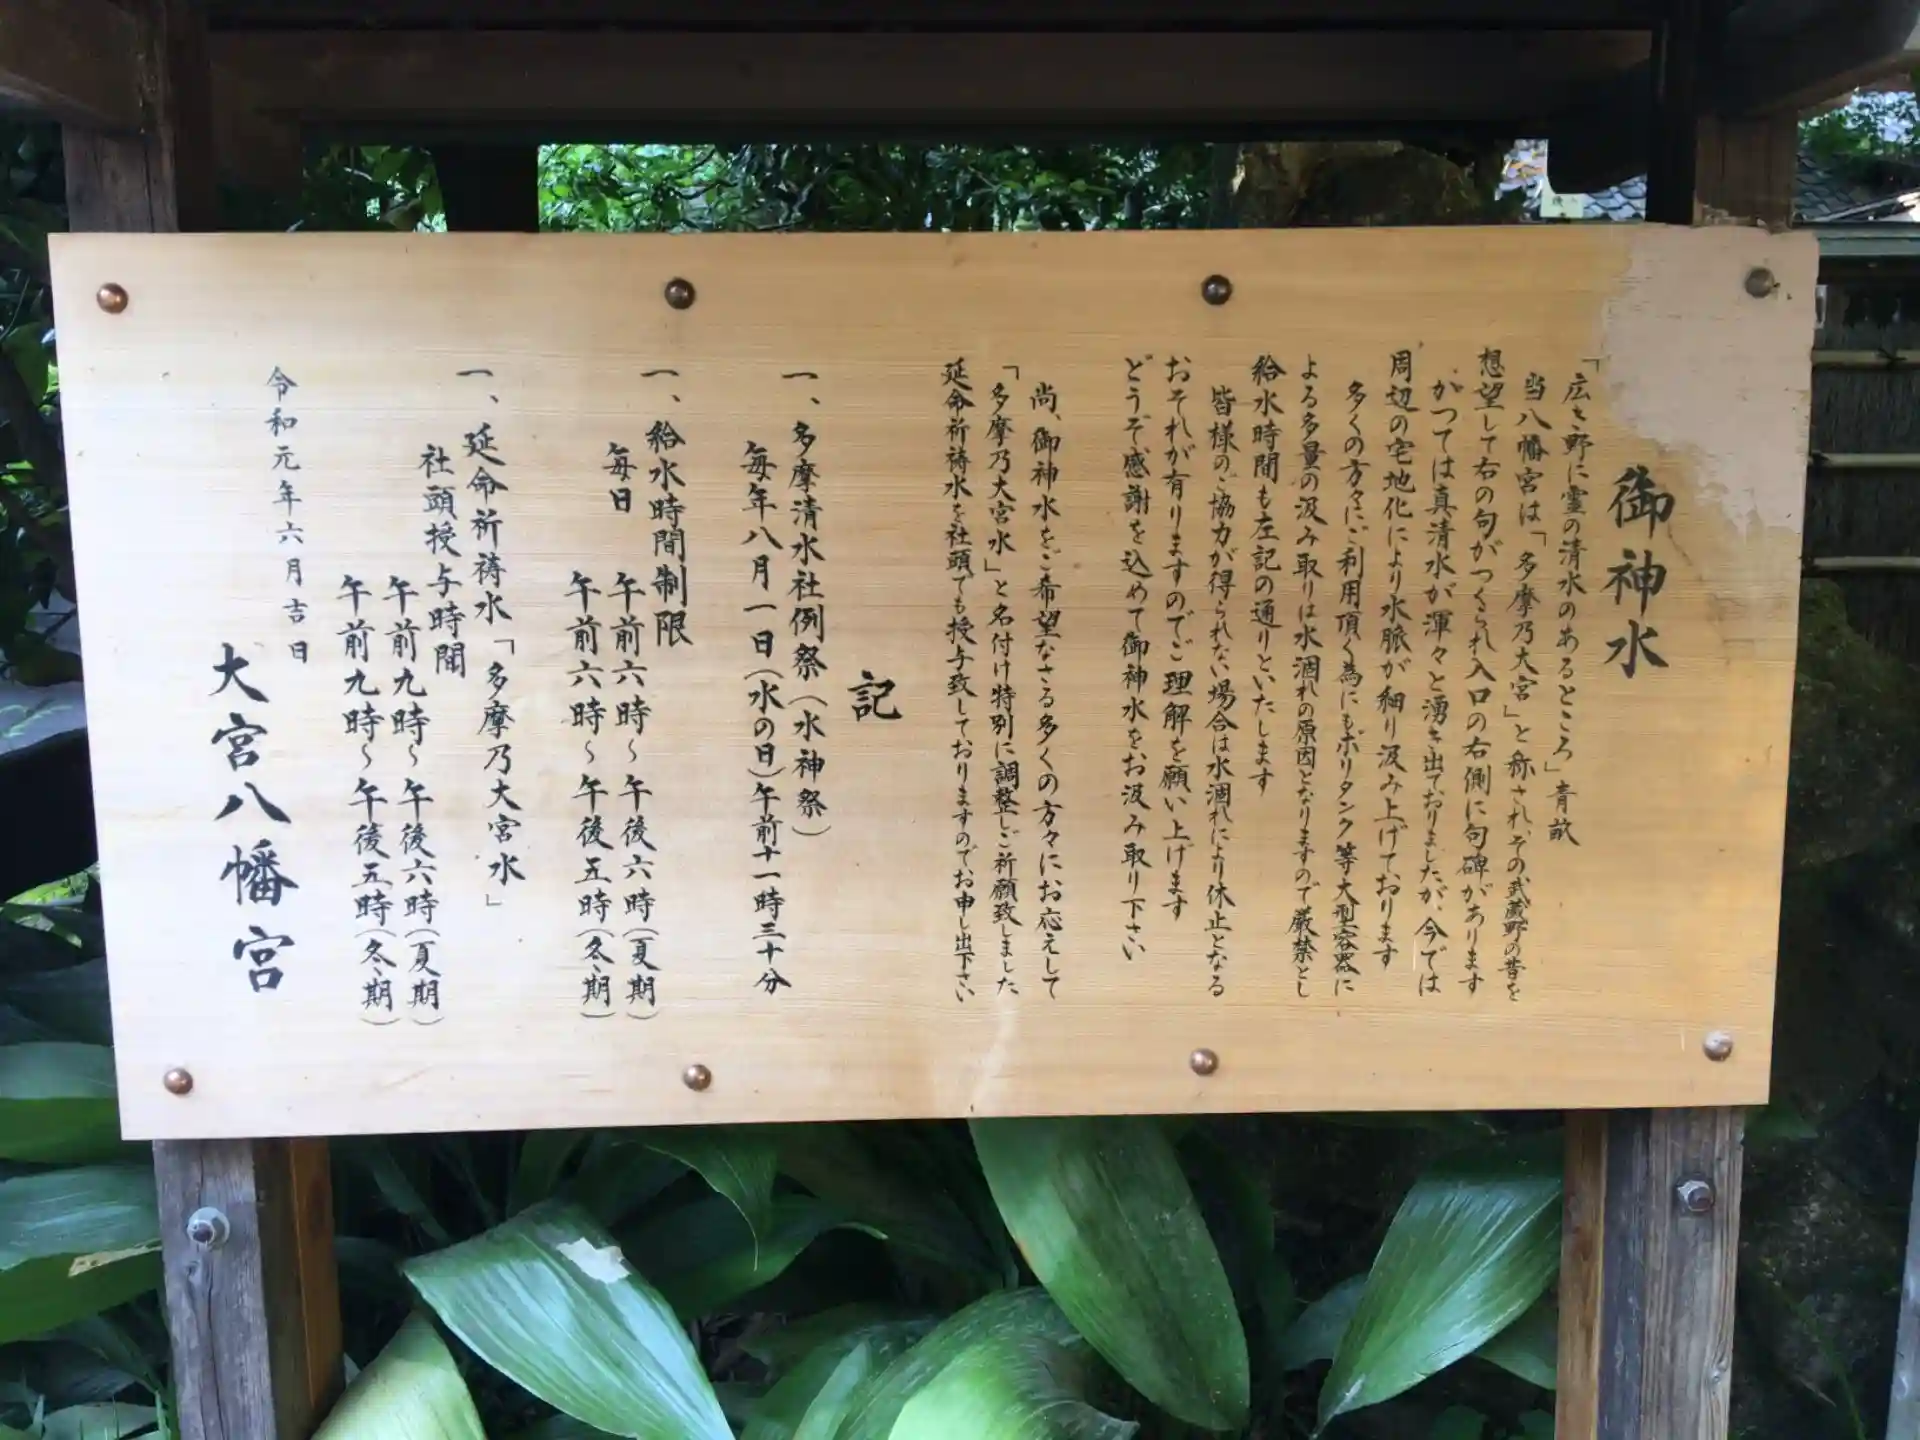 御神水
「広き野に霊の清水のあるところ」青畝
当八幡宮は「多摩乃大宮」と称され、その武蔵野の昔を
想望して右の句がつくられ入口の右側に句碑があります
かつては真清水が渾々と湧き出ておりましたが、今では
周辺の宅地化により水脈が細り汲み上げております
多くの方々にご利用頂く為にもポリタンク等大型容器に
よる多量の汲み取りは水涸れの原因となりますので厳禁とし
給水時間も左記の通りといたします
皆様のご協力が得られない場合は水涸れにより休止となる
おそれが有りますのでご理解を願い上げます
どうぞ感謝を込めて御神水をお汲み取り下さい
尚、御神水をご希望なさる多くの方々にお応えして
「多摩乃大宮水」と名付け特別に調整しご祈願致しました
延命祈祷水を社頭でも授与致しておりますのでお申し出下さい
記
一、多摩清水社例祭(水神祭)
毎年八月一日(水の日)午前十一時三十分
一、給水時間制限
毎日 午前六時~午後六時(夏期)
午前六時~午後五時(冬期)
一、延命祈祷水「多摩乃大宮水」
社頭授与時間
午前九時~午後六時(夏期)
午前九時~午後五時(冬期)
令和元年六月吉日
大宮八幡宮